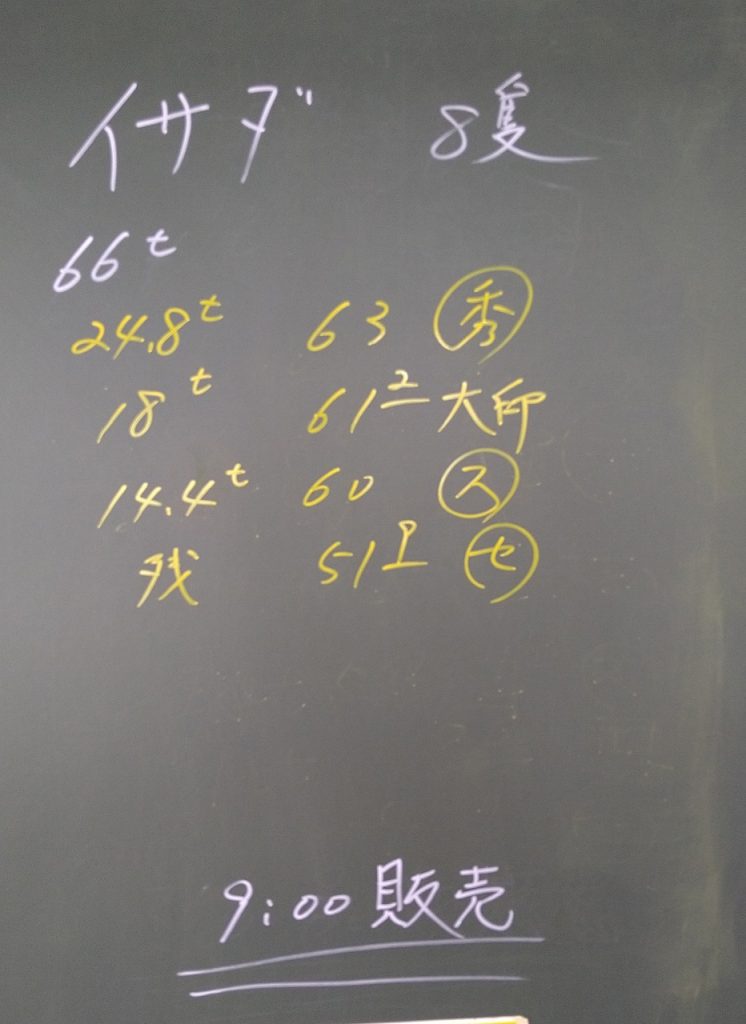 イサダ 8隻
66t
24.8t 63 秀
18t 61² 大印
14.4t 60 ス
残 51⁹ セ
9:00 販売